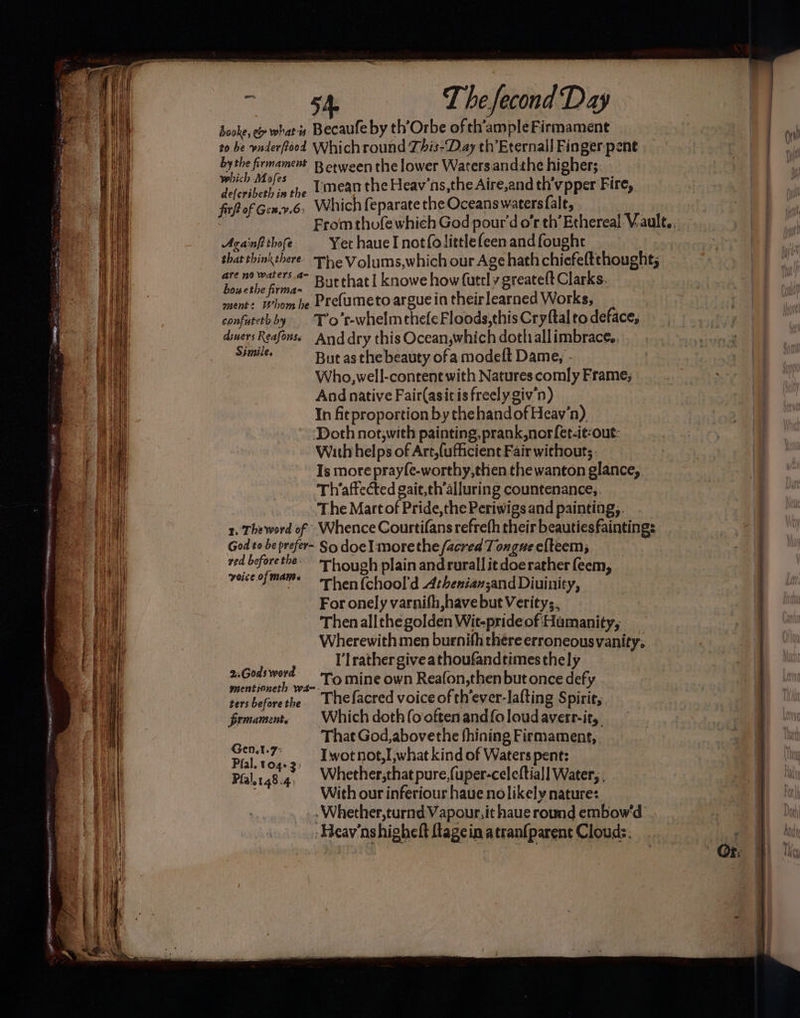 54 The second Day
booke, & what is
to be vnderstood
by the firmament
which Moses
describeth in the
first of Gen.v.6.
Becauseby th'Orbe of th'ample Firmament
Which round This-Day th'Eternall Finger pent
Between the lower Waters and the higher;
I mean the Heav'ns, the Aire, and th'vpper Fire,
Which separate the Oceans waters salt,
From those which God pour'd o'r th'Ethereal Vault.
Against those
that think there
are no waters a-
boue the firma-
ment: Whom he
confuteth by
diuers Reasons.
Simile.
Yet haue I not so little seen and sought
The Volums, which our Age hath chiefest thought;
But that I knowe how suttly greatest Clarks
Presume to argue in their learned Works,
T'o'r-whelm these Floods, this Crystal to deface,
And dry this Ocean, which doth all imbrace.
But as the beauty of a modest Dame,
Who, well-content with Natures comly Frame,
And native Fair (as it is freely giv'n)
In fit proportion by the hand of Heav'n)
Doth not, with painting, prank, nor set-it-out
With helps of Art, sufficient Fair without;
Is more prayse-worthy, then the wanton glance,
Th'affected gait, th'alluring countenance,
The Mart of Pride, the Periwigs and painting,
Whence Courtisans refresh their beauties fainting:
1. The word of
God to be prefer-
red before the
voice of mans
So doe I more the sacred Tongue esteem,
Though plain and rurall it doe rather seem,
Then school'd Athenian; and Diuinity,
For onely varnish, have but Verity;
Then all the golden Wit-pride of Humanity,
Wherewith men burnish there erroneous vanity.
2. Gods word
mentioneth wa-
ters before the
firmament.
Gen.1.7.
Psal.104.3.
Psal.148.4.
I'l rather give a thousand times the ly
To mine own Reason, then but once defy
The sacred voice of th'ever-lasting Spirit,
Which doth so often and so loud averr-it,
That God, above the shining Firmament,
I wot not, I, what kind of Waters pent:
Whether, that pure, super-celestiall Water,
With our inferiour haue no likely nature:
Whether, turnd Vapour, it haue round embow'd
Heav'ns highest stage in a transparent Cloud:
Or